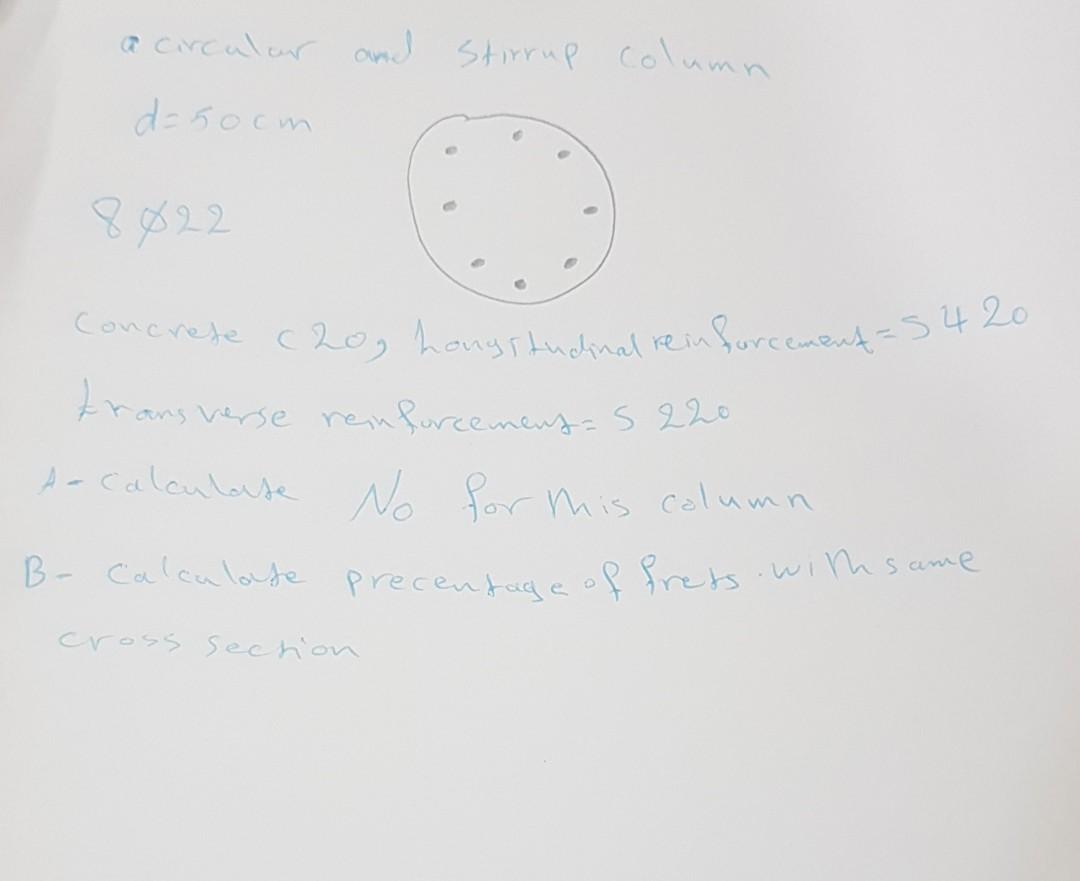 a circular and stirrup column
d=50cm
8Ø22
concrete c20, Longitudinal reinforcement = S420
transverse reinforcement = S 220
A- calculate No for this column
B- calculate precentage of frets. with same
cross section